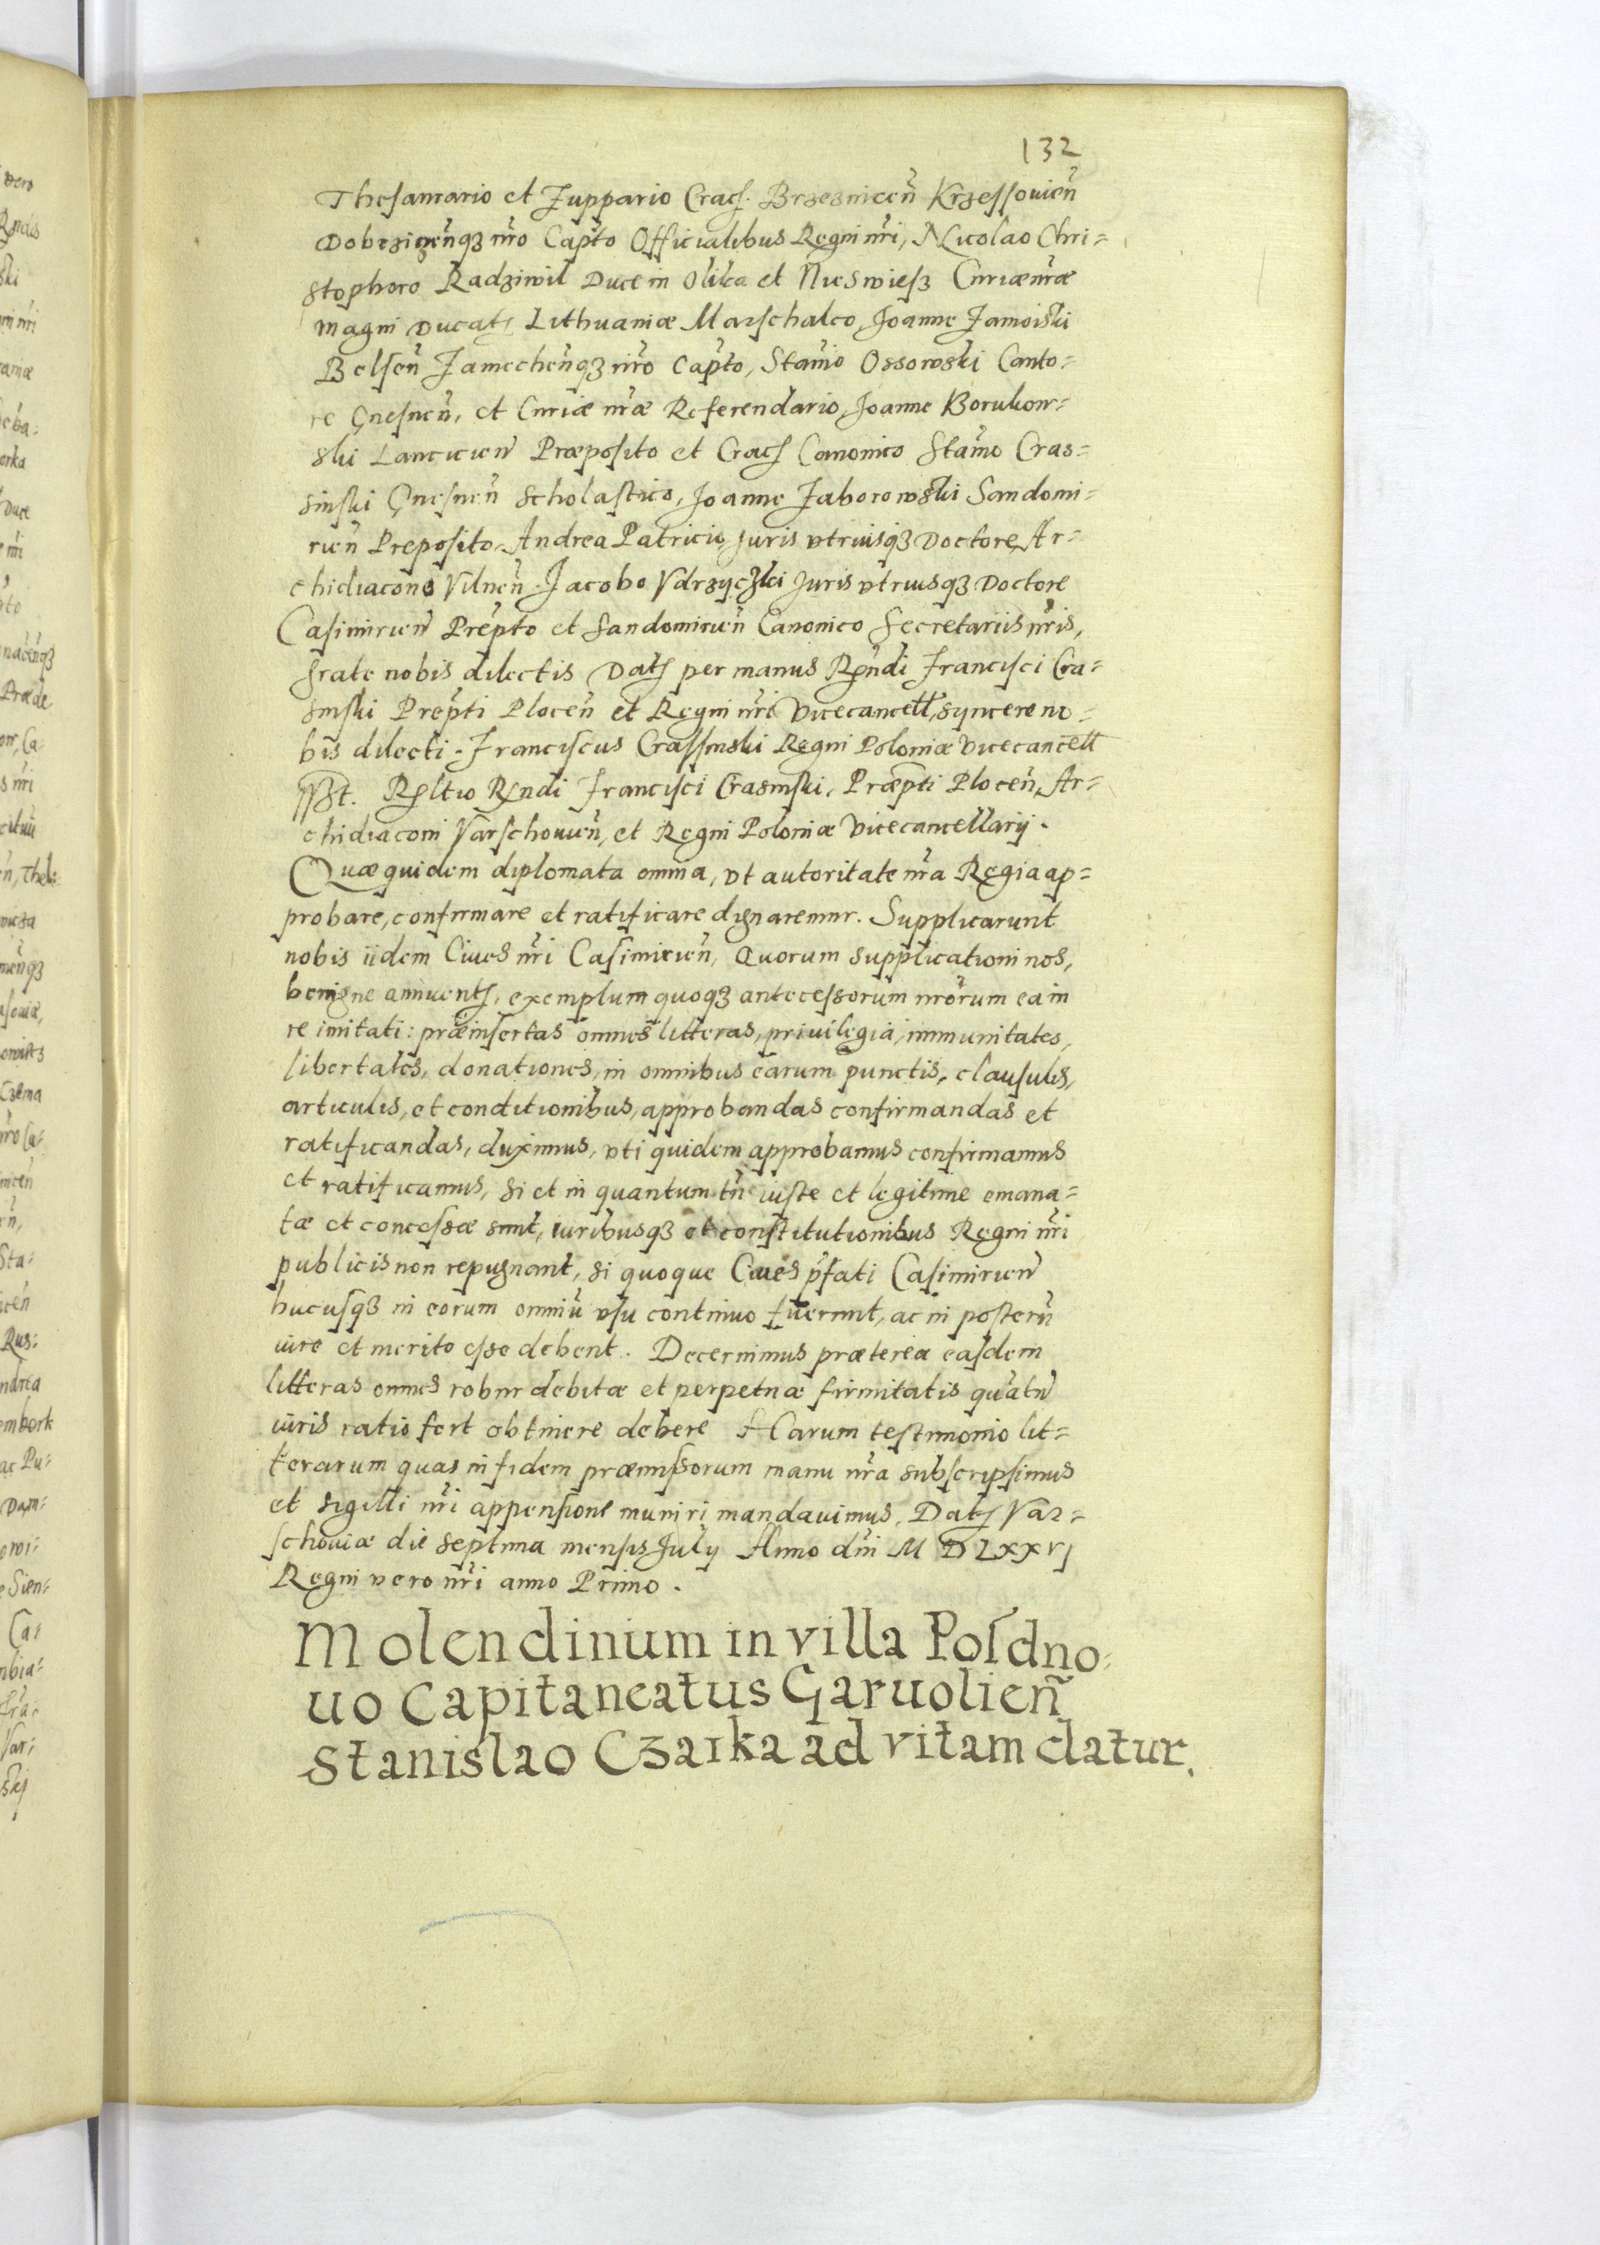 132
Thesaurario et Zuppario Cracƺ. Brzeznicen̄ Krzessouien̄
Dobczicen̄qꝫ nr̄o Capt̄o Officialibus Regni nr̄i, Nicolao Chri=
stophoro Radziwil Duce in Olika et Nieswiesz Curiæ nr̄æ
Magni Ducatꝯ Lithuaniæ Marschalco, Joanne Zamoiski
Belsen̄ Zamechen̄qꝫ nr̄o Capt̄o, Stan̄io Ossowski Canto=
re Gnesnen̄, et Curiæ nr̄æ Referendario, Joanne Borukow=
ski Lancicien̄ Præposito et Cracƺ Canonico Stan̄o Cras=
sinski Gnesnen̄ Scholastico, Joanne Zaborowski Sandomi=
rien̄ Preposito, Andrea Patricio, Juris vtriusqꝫ Doctore, Ar=
chidiacono Vilnen̄. Jacobo Vdrzyczki Juris vtriusqꝫ Doctore
Casimirien̄ Prep̄to et Sandomirien̄ Canonico Secretariis nr̄is,
grate nobis dilectis Datꝯ per manus Rn̄di Francisci Cra=
sinski Prep̄ti Plocen̄ et Regni nr̄i Vicecancell, syncere no=
bis dilecti. Franciscus Crassinski Regni Poloniæ Vicecancell
sszt. Rltio Rndi Francisci Crasinski, Præp̄ti Plocen̄, Ar=
chidiaconi Varschouien̄, et Regni Poloniæ Vicecancellarij.
Quæquidem diplomata omnia, vt autoritate nr̄a Regia ap=
probare, confirmare et ratificare dignaremur. Supplicarunt
nobis iidem Ciues nr̄i Casimirien̄, Quorum supplicationi nos,
benigne annuentꝯ, exemplum quoqꝫ antecessorum nr̄orum ea in
re imitati: præinsertas omnes litteras, priuilegia, immunitates,
libertates, donationes, in omnibus earum punctis, clausulis,
articulis, et conditionibus, approbandas confirmandas et
ratificandas, duximus, vti quidem approbamus confirmamus
et ratificamus, si et in quantum tn̄ iuste et legitime emana=
tæ et concessæ sunt, iuribusqꝫ et constitutionibus Regni nr̄i
publicis non repugnant, si quoque Ciues p̄fati Casimirien̄
hucusqꝫ in eorum omniū vsu continuo fuerunt, ac in posterū
iure et merito esse debent. Decernimus præterea easdem
litteras omnes robur debitæ et perpetuæ firmitatis quatn̄
iuris ratio fert obtinere debere Harum testimonio lit=
terarum quas in fidem præmissorum manu nr̄a subscripsimus
et sigilli nr̄i appensione muniri mandauimus. Datꝯ Var=
schouiæ die septima mensis July Anno dn̄i M D LXXVJ
Regni vero nr̄i anno Primo.
Molendinum in villa Posdno=
uo Capitaneatus Garuolien̄
Stanislao Czaika ad vitam datur.